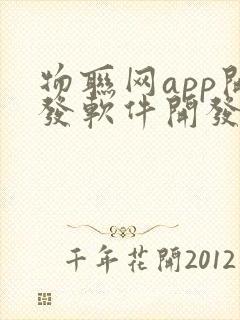 物聯网app開
發軟件開發
千年花開2012